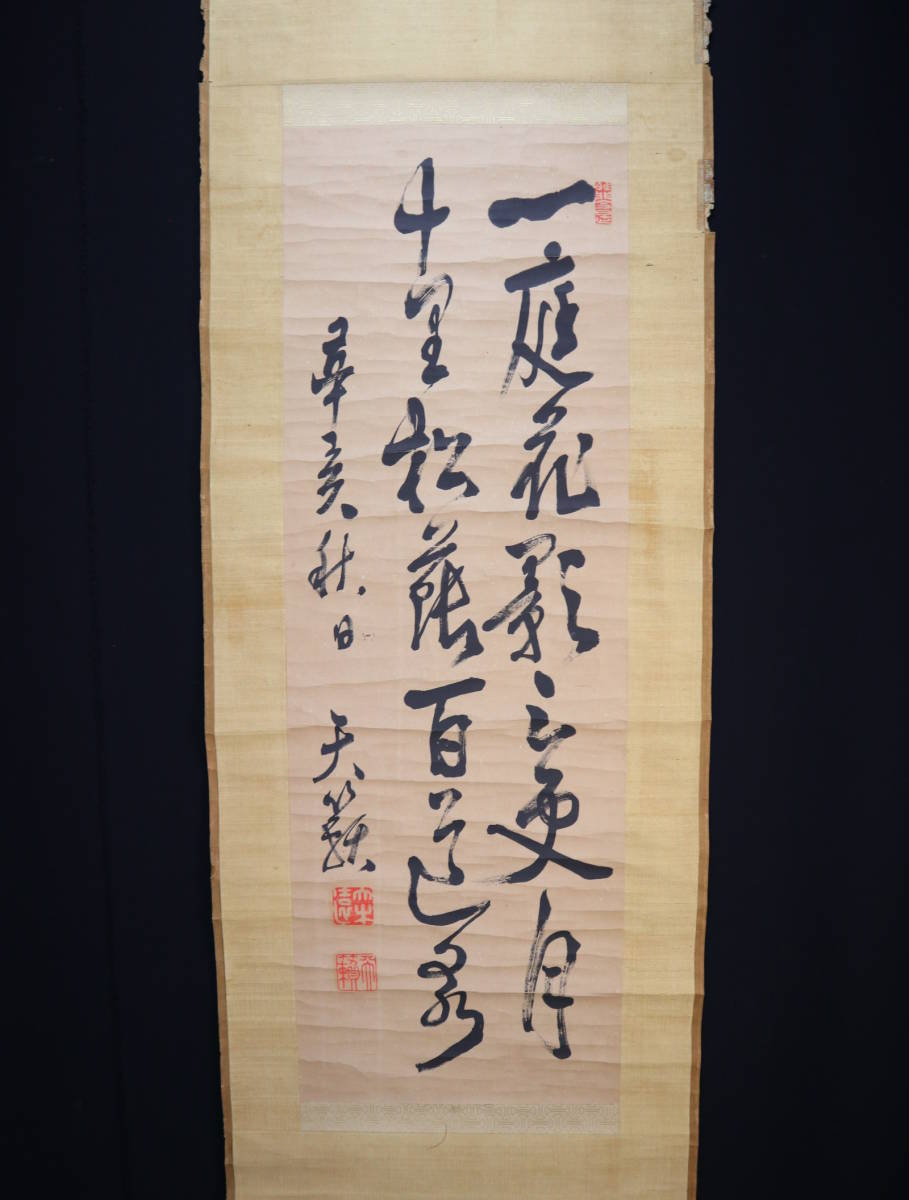 一庭花影三更月
千里松蔭百道泉
辛亥秋日
天籟